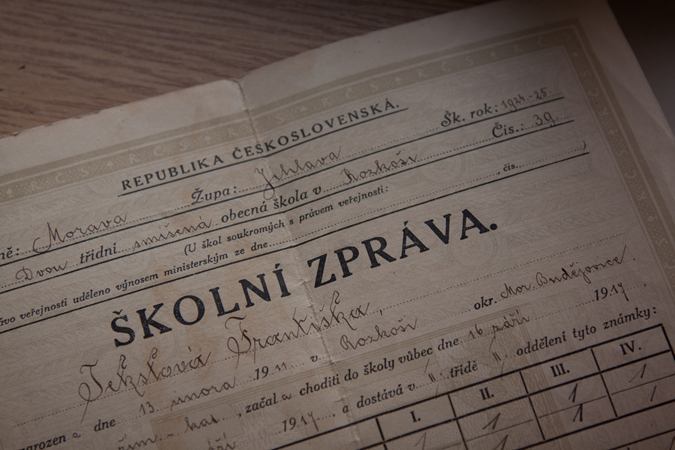 REPUBLIKA ČESKOSLOVENSKÁ.
ně: Morava Župa: Jihlava Šk. rok: 1924-25
Dvou třídní smíšená obecná škola v Rozkoši Čís.: 39
(U škol soukromých s právem veřejnosti:
vo veřejnosti uděleno výnosem ministerským ze dne , čís. )
ŠKOLNÍ ZPRÁVA.
Františka,
narozen a dne 13. února 1911 v Rozkoši okr. Mor. Budějovice
kat. , začal a choditi do školy vůbec dne 16 září 1917
1917 , a dostává v II. třídě II. oddělení tyto známky:
I. II. III. IV.
1 1 1 1
1 1